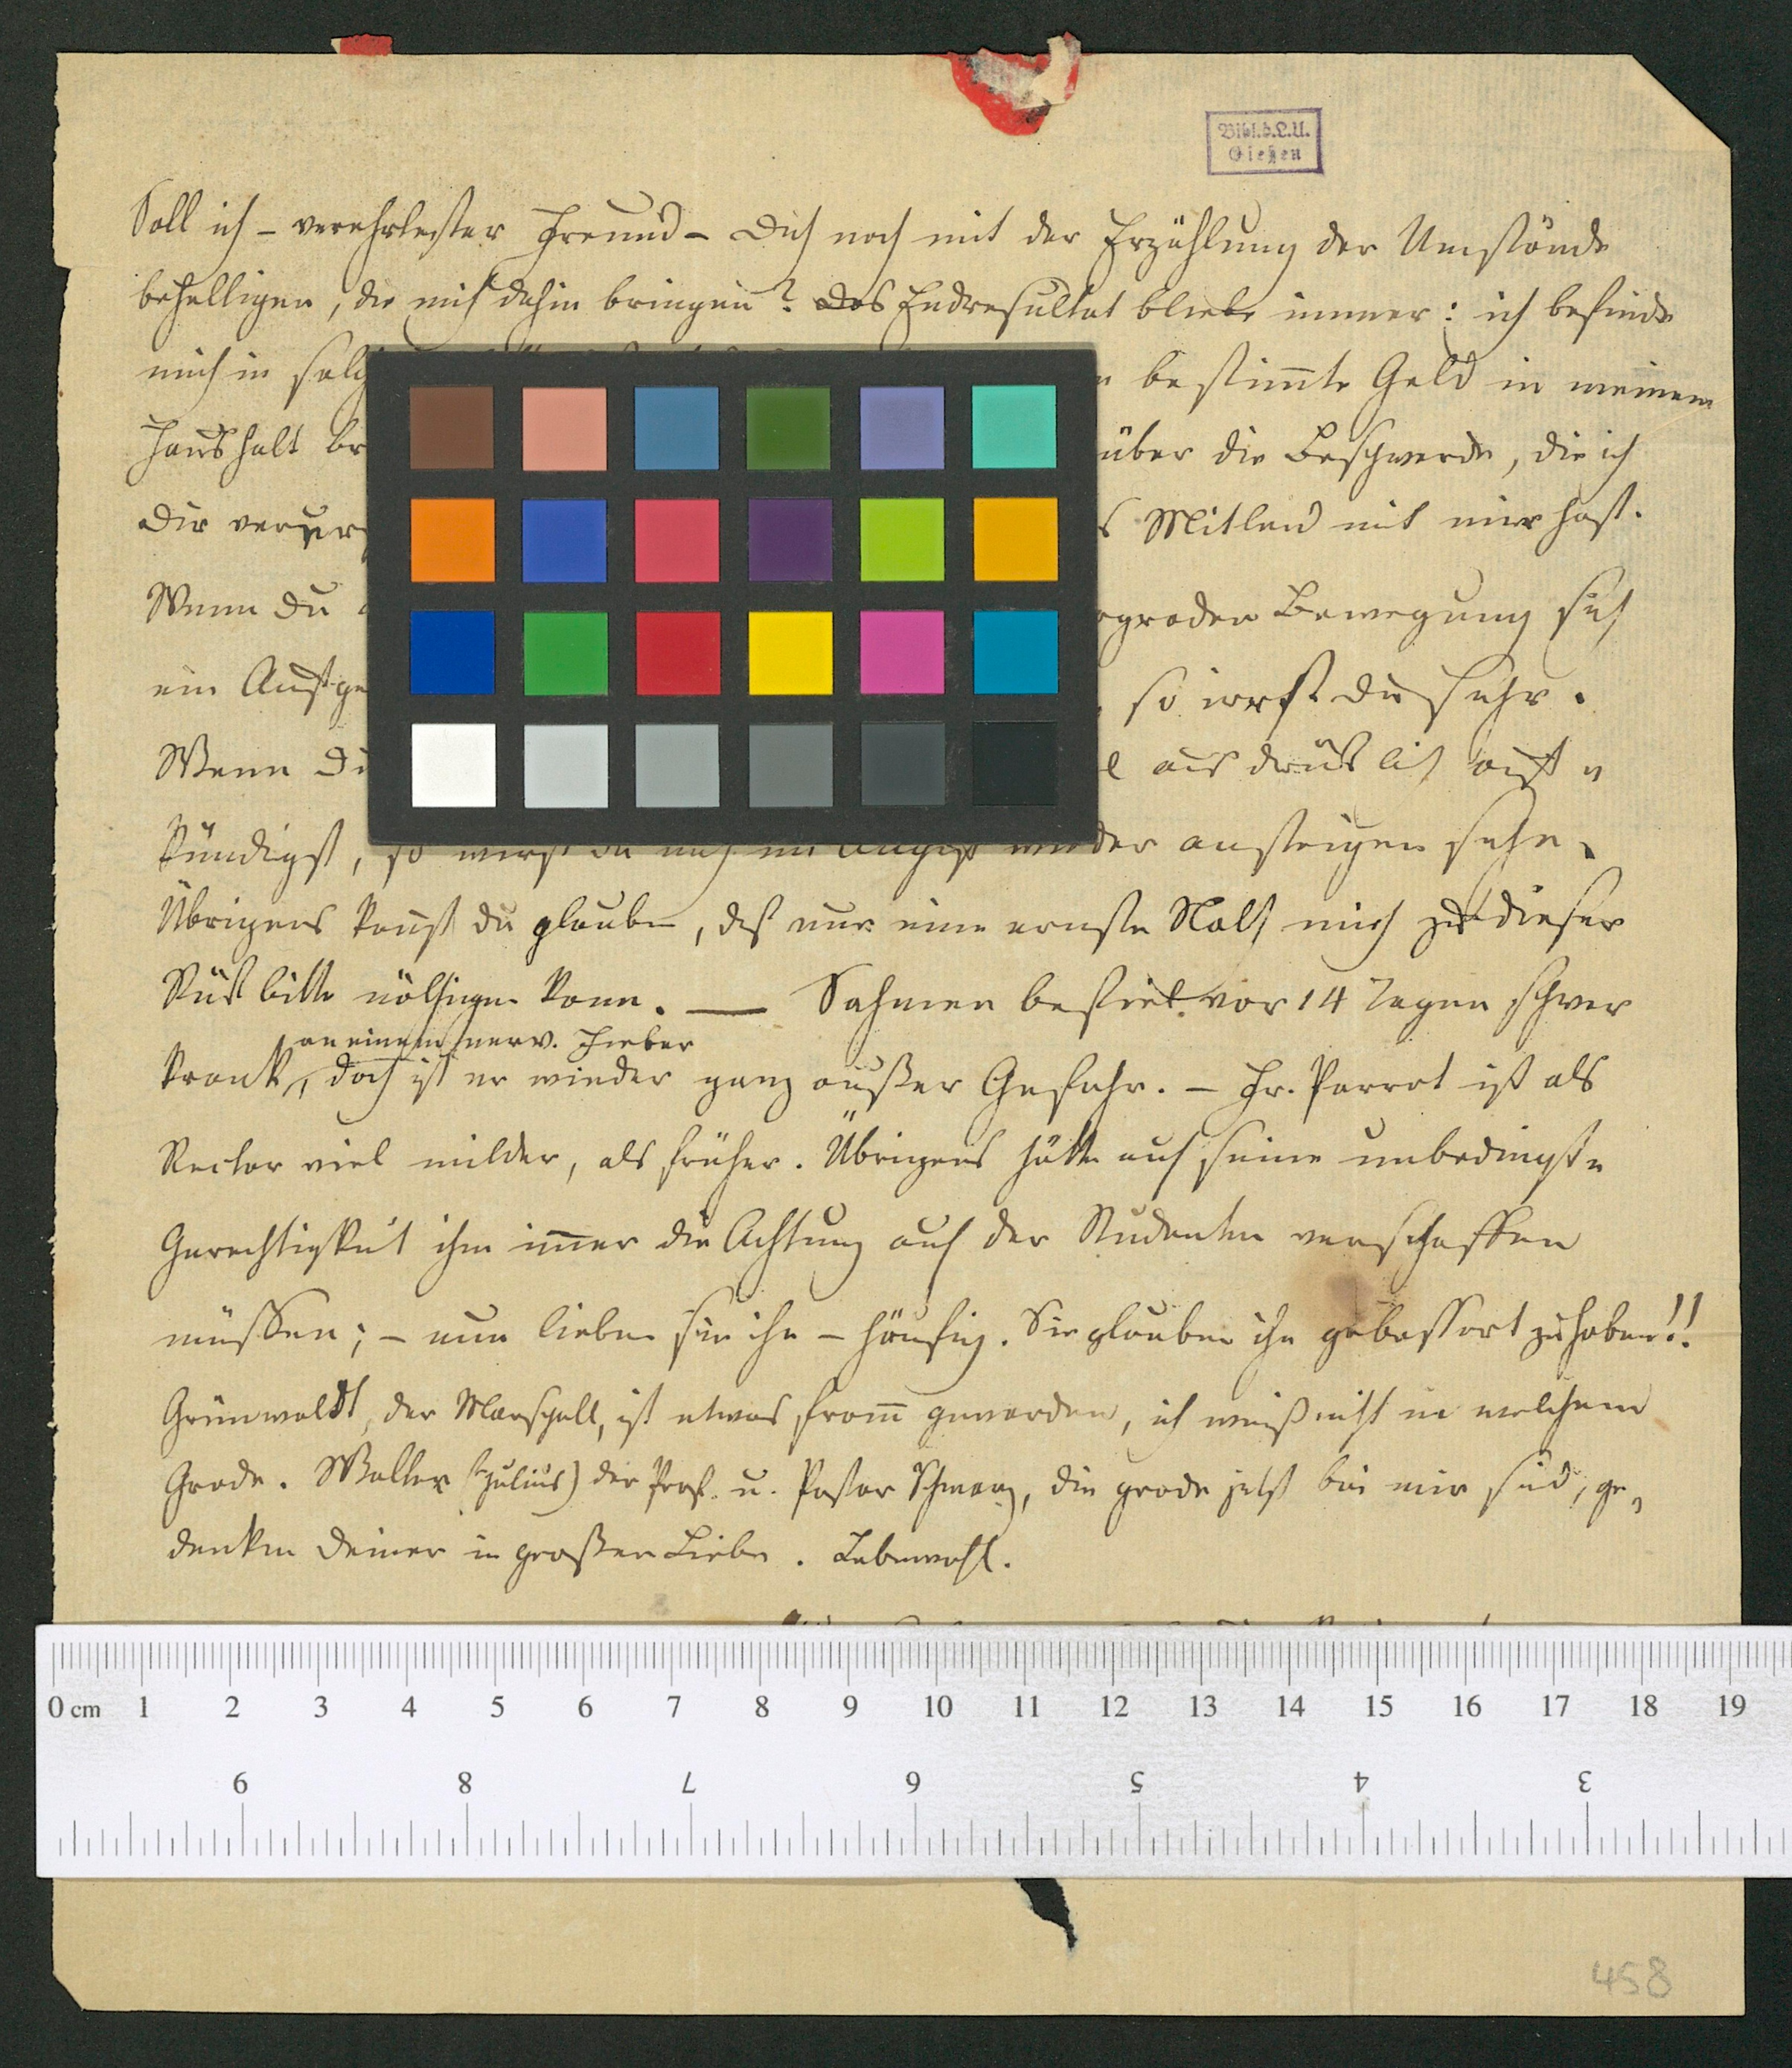 Bibl.d.L.U.
Gießen
Soll ich – verehrtester Freund – Dich noch mit der Erzählung der Umstände
behelligen, die mich dahin bringen? Das Endresultat bliebe immer: ich befinde
mich in solch bestimmte Geld in meinem
Haushalt br über die Beschwerde, die ich
Dir verurs Mitleid mit mir hast.
Wenn du Bewegung sich
ein so irrst du sehr.
Wenn Du ausdrücklich
kündigst, so wirst du wieder ansteigen sehn.
Übrigens kannst du glauben, daß nur eine ernste Noth mich zu dieser
Rückbitte nöthigen kann. — Sahmen befiel vor 14 Tagen schwer
an einem nerv. Fieber
krank, doch ist er wieder ganz außer Gefahr. – Hr. Parrot ist als
Rector viel milder, als früher. Übrigens hätte auch seine unbedingte
Gerechtigkeit ihm immer die Achtung auch der Studenten verschaffen
müssen; – nun lieben sie ihn – häufig. Sie glauben ihn gebessert zu haben!!
Grünwaldt, der Marschall, ist etwas from geworden, ich weiß nicht in welchem
Grade. Walter (Julius) der Prof. u. Pastor Schwarz, die grade jetzt bei mir sind, ge-
denken Deiner in großer Liebe. Lebewohl.
0 cm 1 2 3 4 5 6 7 8 9 10 11 12 13 14 15 16 17 18 19
9 8 7 6 5 4 3
458